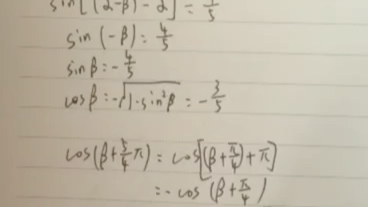 sin[(2-β)-2] = 4/5
sin(-β) = 4/5
sinβ = -4/5
cosβ = -√(1-sin²β) = -3/5
cos(β+5/4π) = cos[(β+π/4)+π]
= -cos(β+π/4)